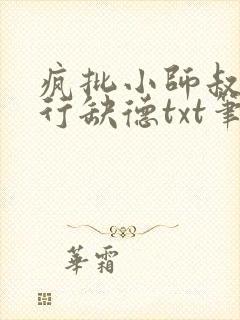 疯批小師叔
行缺德txt筆
華霜